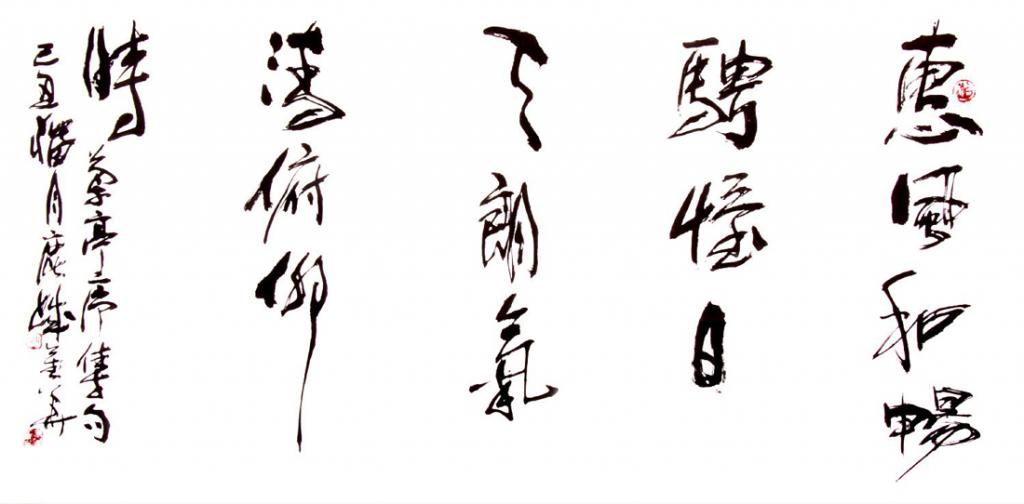 惠風和暢
騁懷日
天朗氣
清俯仰
時
蘭亭序集句
己丑臘月